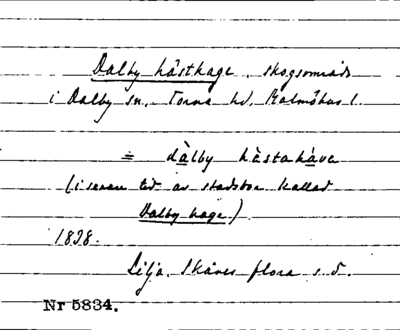 Dalby hästhage, skogsområde
i Dalby sn, Torna hd, Malmöhus l.
= dàlby hèstahàva
(i senare tid av stadsbor kallad
Dalby hage)
1838.
Lilja, Skånes flora s. 5.
Nr 5834.